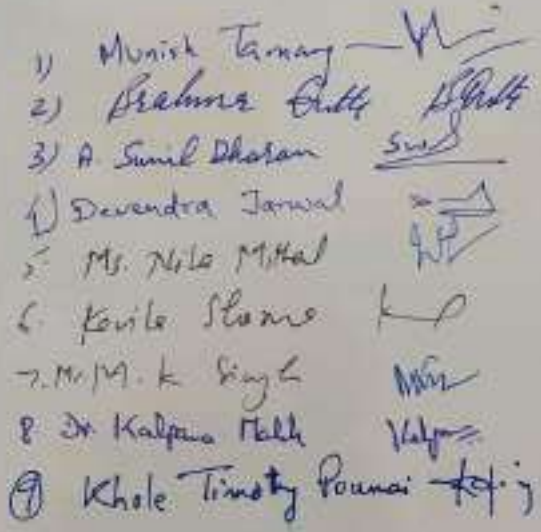 1) Munish Tamang
2) Brahma Dutt
3) A. Sunil Dharan
4) Devendra Jarwal
5. Ms. Nila Mittal
6. Kavita Sharma
7. Mr. M. K Singh
8 Dr Kalpana Malik
9 Khole Timothy Poumai